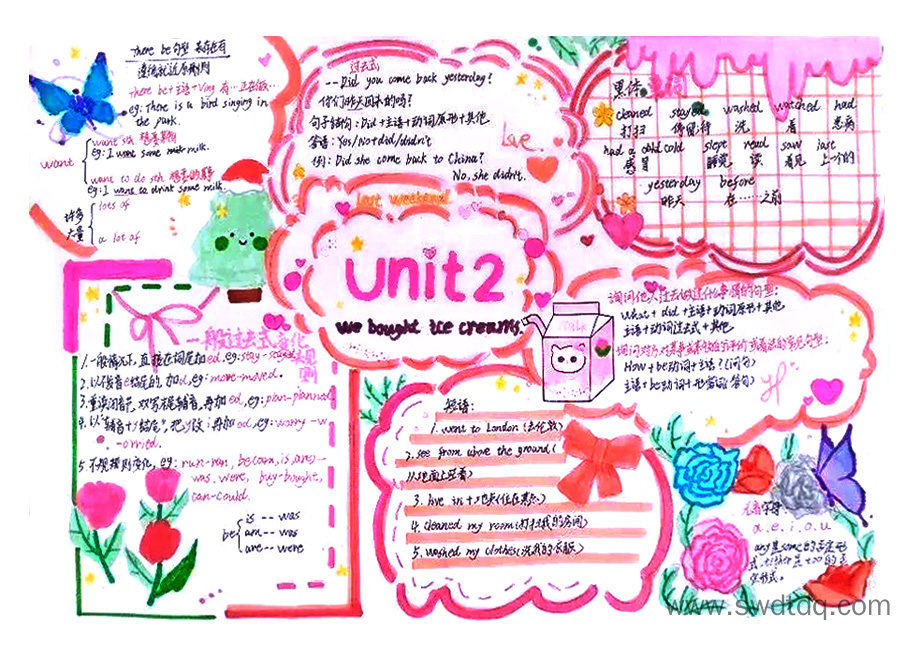 there be句型
遵循就近原则
there be+主语+Ving 有…正在做…
eg: there is a bird singing in
the park.
want
want sth. 想要某物
eg: I want some milk.
want to do sth 想要做某事
eg: I want to drink some milk
许多
大量
lots of
a lot of
过去式
--Did you come back yesterday?
你们昨天回来的吗?
句子结构:Did+主语+动词原形+其他
答语:Yes/No+did/didn't
例:Did she come back to China?
No, she didn't.
Love
黑体
cleaned stayed washed watched had
打扫 停留/待 洗 看 患病
had a cold slept read saw last
感冒 睡觉 读 看见 上一个的
yesterday before
昨天 在……之前
Last weekend
unit2
We bought ice creams.
Milk
询问他人过去做过什么事情的句型:
What+did+主语+动词原形+其他
主语+动词过去式+其他
How+be动词+主语?(问句)
主语+be动词+形容词(答句)
一般过去式变化
规则
1.一般情况下,直接在词尾加ed,eg:stay-stayed
2.以不发音e结尾的,加d,eg:move-moved。
3.重读闭音节,双写末尾辅音,再加ed,eg:plan-planned
4.以"辅音+y结尾",把y改i再加ed,eg:worry-w
-orried.
5.不规则变化,eg:run-ran,become,is,are--
was.were, buy-bought,
can-could.
be
is -- was
am -- was
are -- were
短语:
1. went to London(去伦敦)
2. see from above the ground(
从地面上空看)
3. live in+地点(住在某处)
4. cleaned my room(打扫我的房间)
5. washed my clothes(洗我的衣服)
元音字母
a.e.i.o.u
any是some的否定形
式,either是too的否
定形式。
www.swdtdq.com